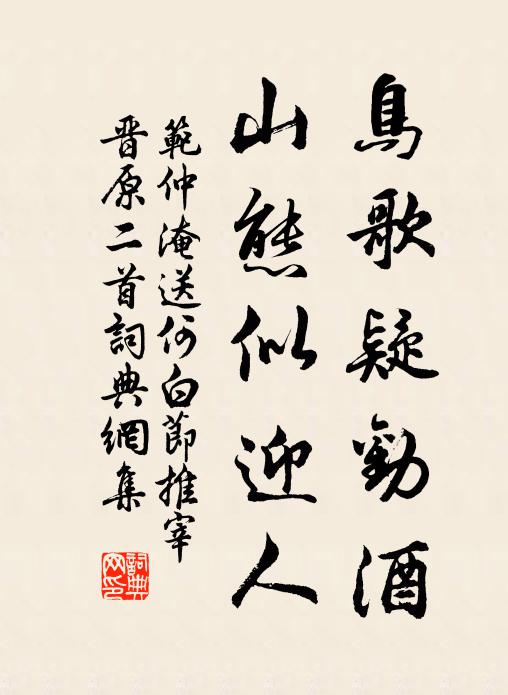 鳥歌疑勸酒
山態似迎人
範仲淹送何白節推宰
晉原二首詞典網集
詞典网印